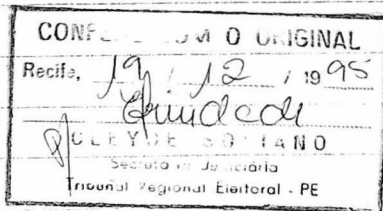 CONFE UM O ORIGINAL
Recife, 19 / 12 / 1995
CLEYDE SORIANO
Secretária Judiciária
Tribunal Regional Eleitoral - PE